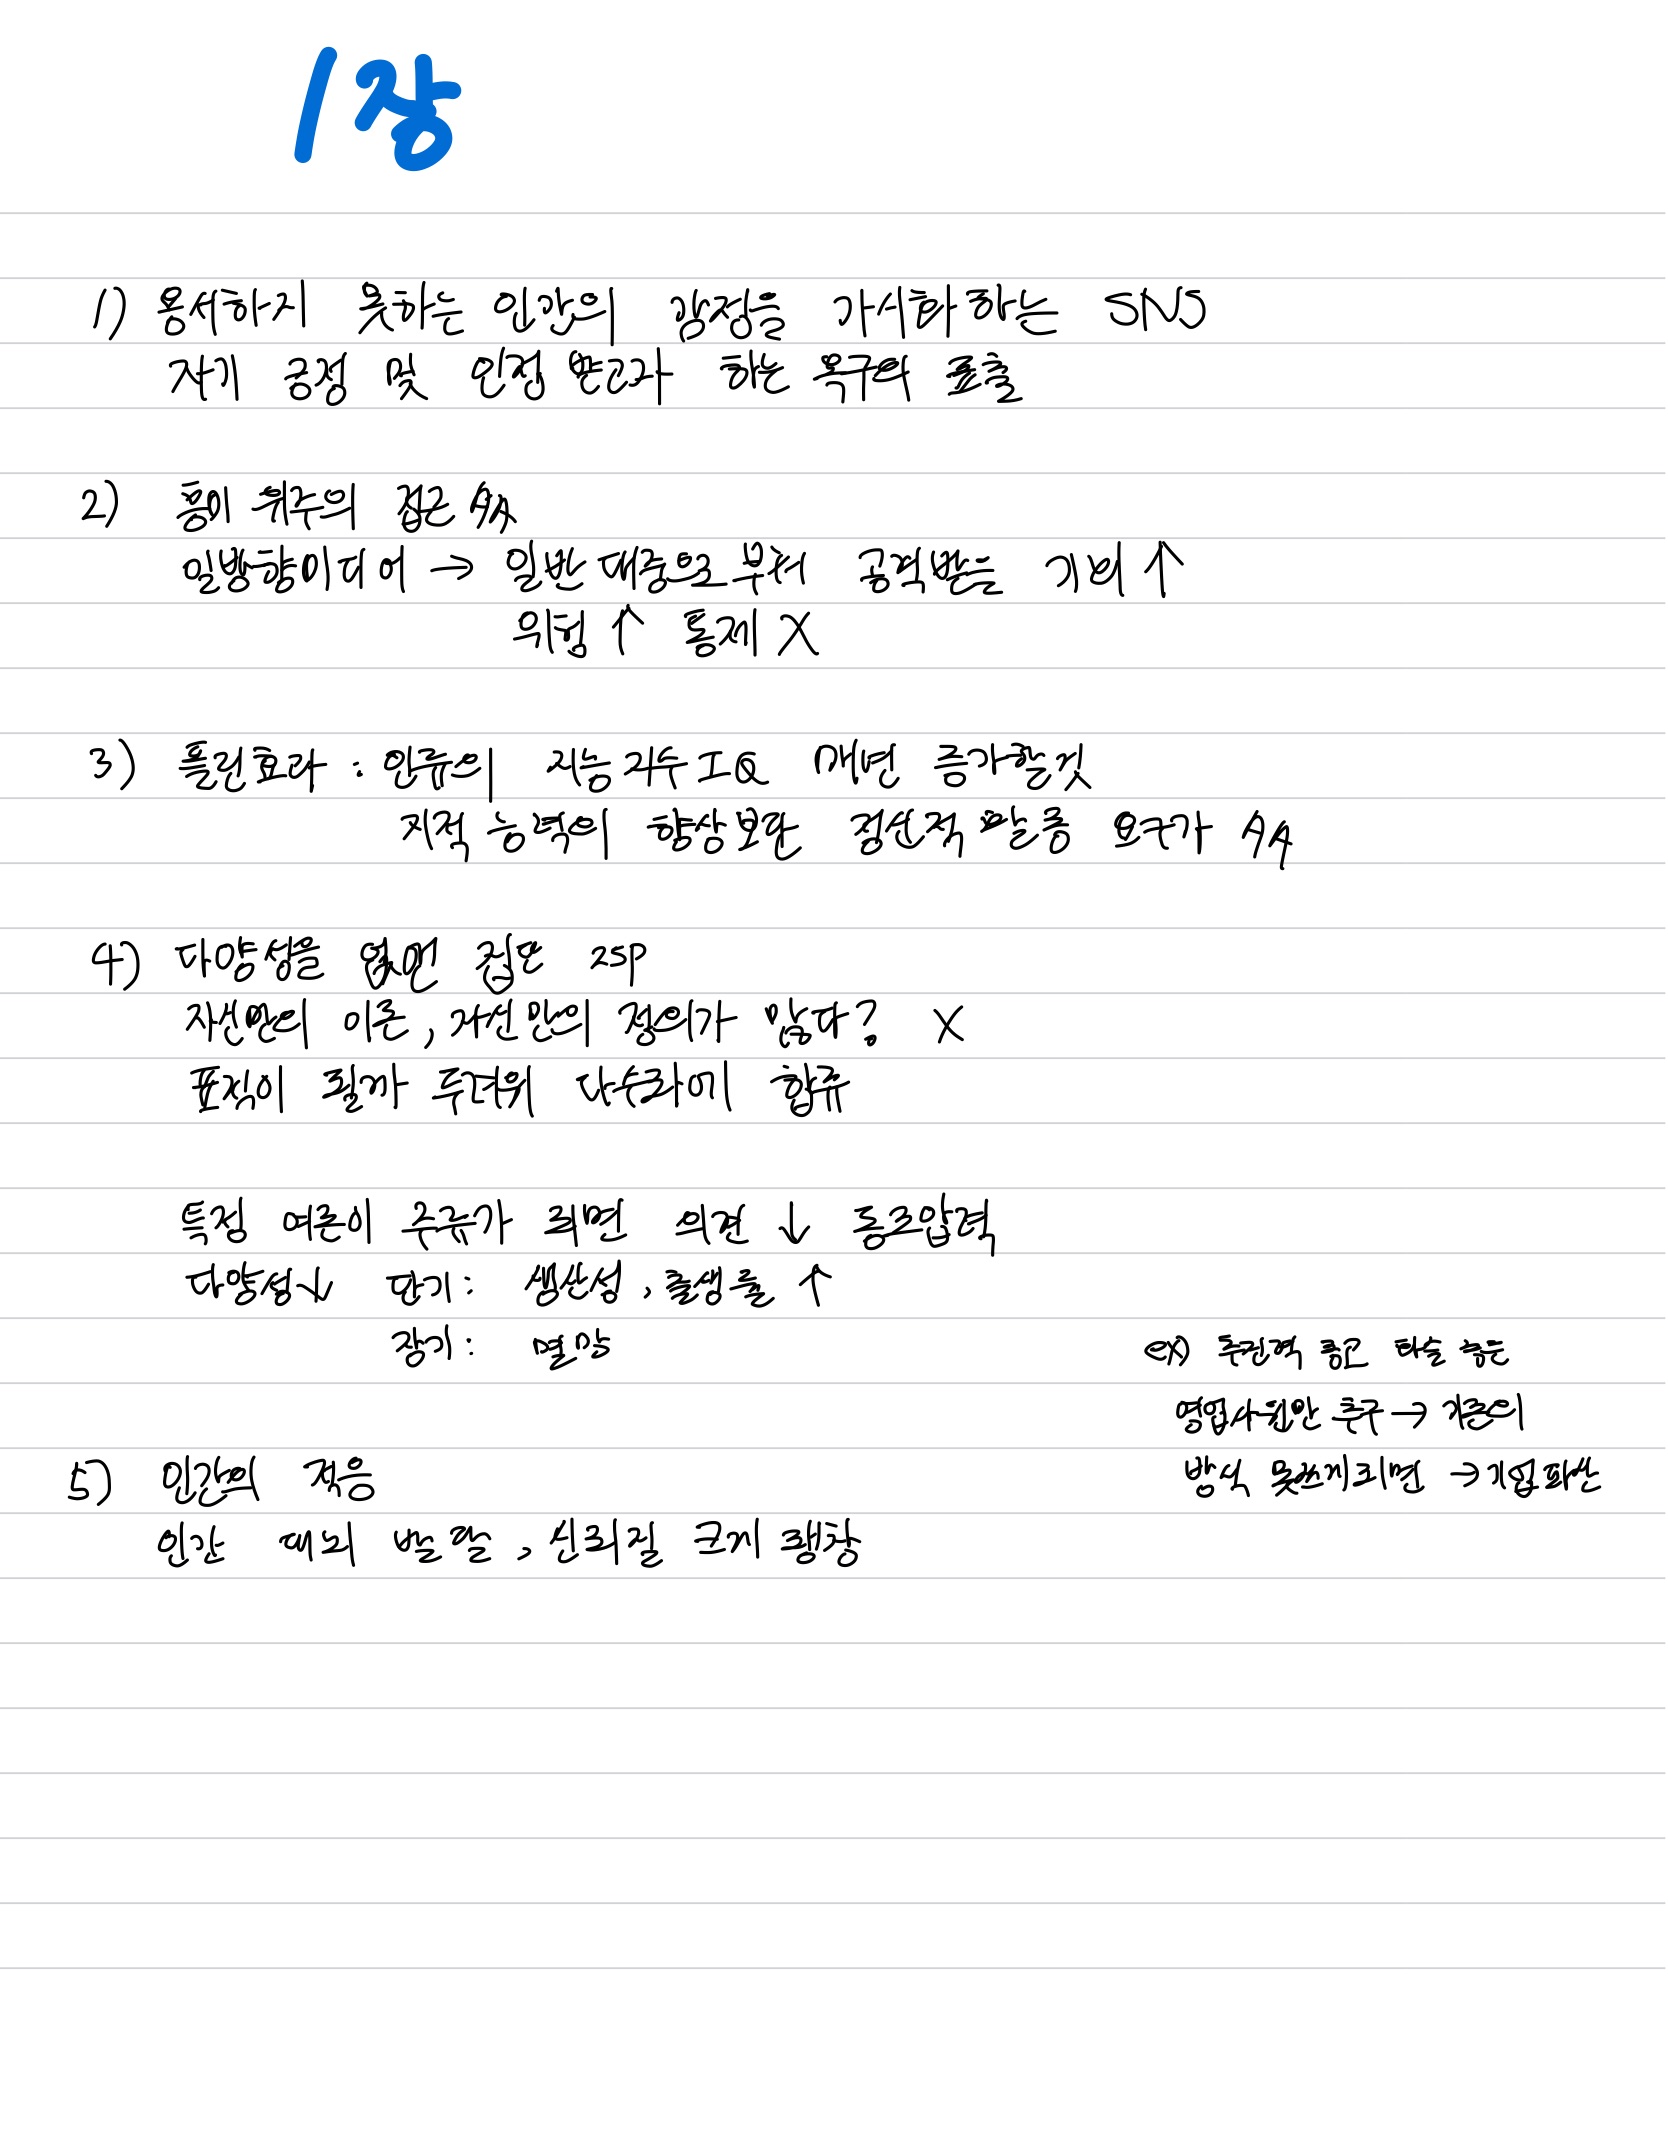 1장
1) 용서하지 못하는 인간의 감정을 가시화하는 SNS
자기 긍정 및 인정 받고자 하는 욕구의 표출
2) 흥미 위주의 접근 AA
일방향미디어 → 일반 대중으로부터 공격받을 기회 ↑
위험 ↑ 통제 X
3) 플린효과 : 인류의 지능지수 IQ 매년 증가할것
지적 능력의 향상보단 정신적 요구가 AA
4) 다양성을 없앤 집단 25p
자신만의 이론, 자신만의 정의가 많다? X
표적이 될까 두려워 다수파에 합류
특정 여론이 주류가 되면 의견 ↓ 동조압력
다양성↓ 단기: 생산성, 출생률 ↑
장기: 멸망
ex) 좋고 화술 좋은
영업사원만 추구 → 기존의
방식 못쓰게되면 → 기업파산
5) 인간의 적응
인간 대뇌 발달, 신피질 크게 팽창